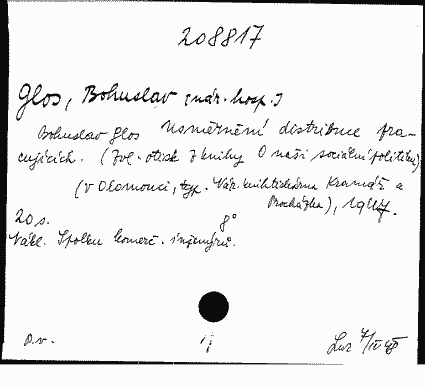 208817
Glos, Bohuslav [nár. hosp.]
Bohuslav Glos Usměrnění distribuce pra-
cujících. (Zvl. otisk z knihy O naší sociální politiku)
(V Olomouci, typ. Nár. knihtiskárna Kramář a
Procházka), 1947.
20 s. 8°
Nákl. Spolku komerč. inženýrů.
D.v.